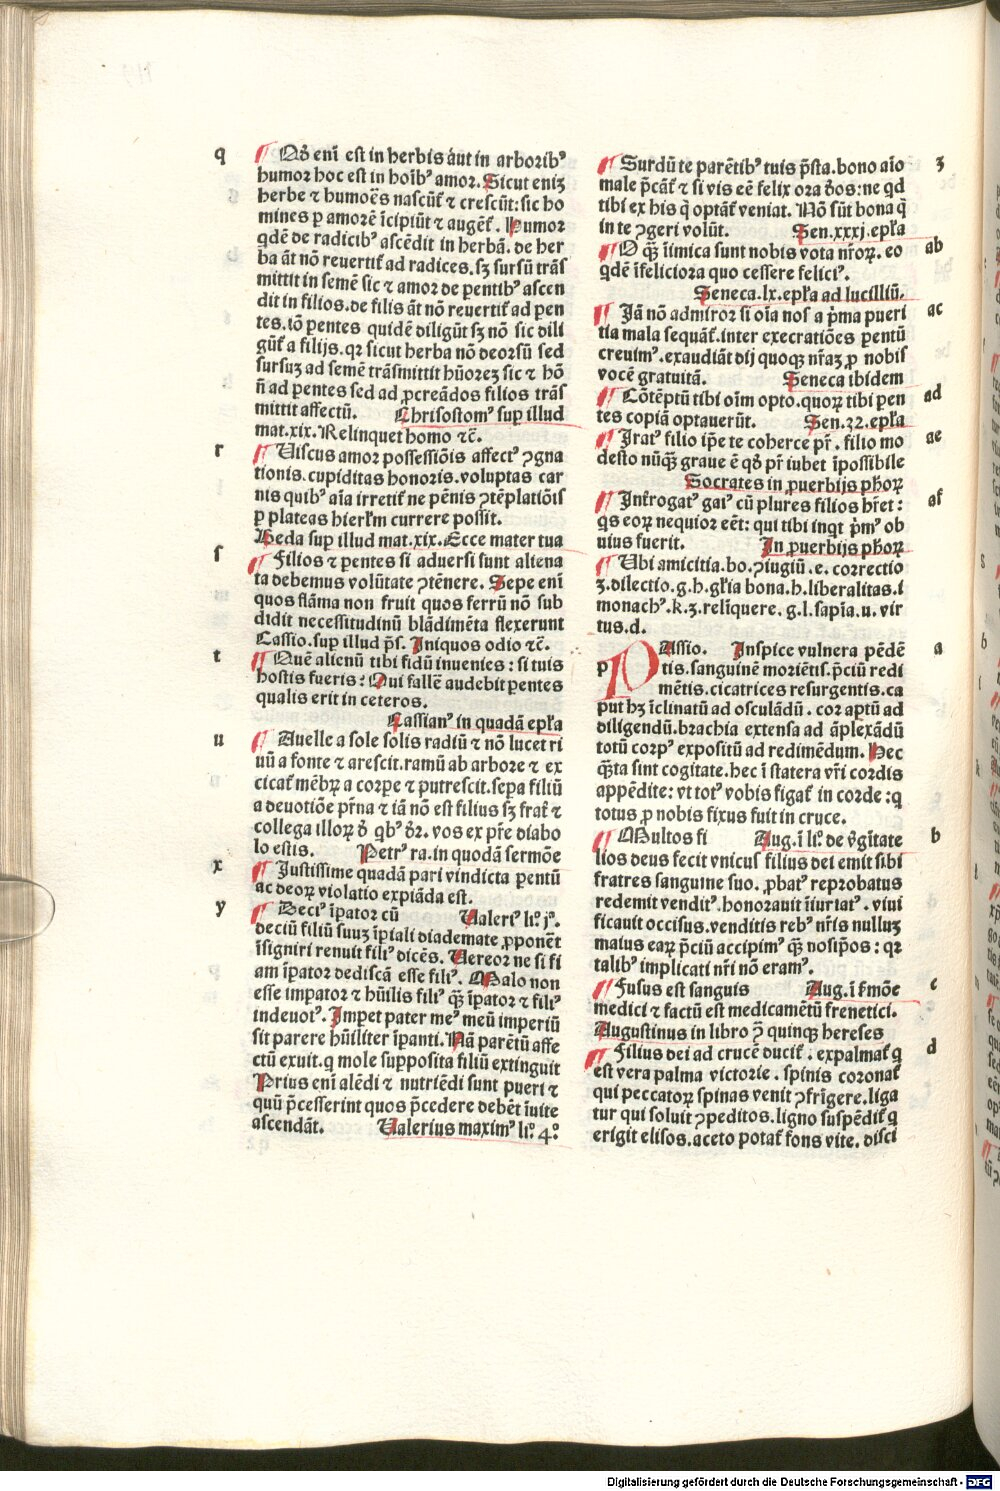 q
¶ Qð eni̅ est in herbis aut in arboribꝰ
humor hoc est in hoi̅bꝰ amor. Sicut eniʒ
herbe ⁊ humo̅es nascu̅t̉ ⁊ crescu̅t: sic ho
mines ꝑ amore̅ i̅cipiu̅t ⁊ auge̅t̉. Humor
qde̅ de radicibꝰ asce̅dit in herba̅. de her
ba a̅t no̅ reuertit̉ ad radices. sʒ sursu̅ tra̅s
mittit in seme̅ sic ⁊ amor de pe̅ntibꝰ ascen
dit in filios. de filis a̅t no̅ reuertit̉ ad pen
tes. io̅ pe̅ntes quide̅ diligu̅t sʒ no̅ sic dili
gu̅t̉ a filijs. qꝛ sicut herba no̅ deorsu̅ sed
sursuʒ ad seme̅ tra̅smittit hu̅oreʒ sic ⁊ ho̅
n̅ ad pe̅ntes sed ad ꝓcrea̅dos filios tra̅s
mittit affectu̅. Chrisostomꝰ sup̲ illud
mat.xix. Relinquet homo ⁊c̅.
r
¶ Uiscus amor possessio̅is affectꝰ ꝯgna
tionis. cupiditas honoris. voluptas car
nis quibꝰ ai̅a irretit̉ ne pe̅nis ꝯte̅platio̅is
ꝑ plateas hierl̅m currere possit.
Beda sup̲ illud mat.xix. Ecce mater tua
s
¶ Filios ⁊ pe̅ntes si aduersi sunt aliena
ta debemus volu̅tate ꝯte̅nere. Sepe eni̅
quos fla̅ma non fruit quos ferru̅ no̅ sub
didit necessitudinu̅ bla̅dime̅ta flexerunt
Cassio. sup̲ illud p̅s. Iniquos odio ⁊c̅.
t
¶ Que̅ alienu̅ tibi fidu̅ inuenies: si tuis
hostis fueris? Qui falle̅ audebit pe̅ntes
qualis erit in ceteros.
Cassianꝰ in quada̅ ep̅la
u
¶ Auelle a sole solis radiu̅ ⁊ no̅ lucet ri
uu̅ a fonte ⁊ arescit. ramu̅ ab arbore ⁊ ex
cicat̉ me̅bꝝ a corpe ⁊ putrescit. sepa filiu̅
a deuotio̅e pr̅na ⁊ ia̅ no̅ est filius sʒ frat̉ ⁊
collega illoꝝ ð qbꝰ ðꝛ. vos ex pr̅e diabo
lo estis. Petrꝰ ra. in quoda̅ sermo̅e
x
¶ Justissime quada̅ pari vindicta pentu̅
ac deoꝝ violatio expia̅da est.
y
¶ Deciꝰ i̅pator cu̅ Ualeriꝰ li.º j.º
deciu̅ filiu̅ suuʒ i̅piali diademate ꝓpone̅t
i̅signiri renuit filiꝰ dice̅s. Uereor ne si fi
am i̅pator dedisca̅ esse filiꝰ. Malo non
esse impator ⁊ hu̅ilis filiꝰ qꝫ̅ i̅pator ⁊ filiꝰ
indeuotꝰ. Impet pater meꝰ meu̅ imperiu̅
sit parere hu̅iliter i̅panti. Na̅ paretu̅ affe
ctu̅ exuit. q mole supposita filiu̅ extinguit
Prius eni̅ ale̅di ⁊ nutrie̅di sunt pueri ⁊
quu̅ p̅cesserint quos p̅cedere debe̅t i̅uite
ascenda̅t. Ualerius maximꝰ li.º 4.º
ʒ
¶ Surdu̅ te pare̅tibꝰ tuis p̅sta. bono ai̅o
male p̅ca̅t̉ ⁊ si vis ee̅ felix ora ðos: ne qd
tibi ex his q̅ opta̅t̉ veniat. No̅ su̅t bona q̅
in te ꝯgeri volu̅t. Sen.xxxj.ep̅la
ab
¶ O qꝫ̅ i̅imica sunt nobis vota nr̅oꝝ. eo
qde̅ i̅feliciora quo cessere feliciꝰ.
Seneca.lx.ep̅la ad lucilliu̅.
ac
¶ Ja̅ no̅ admiror si oi̅a nos a p̅ma pueri
tia mala sequa̅t̉. inter execratio̅es pentu̅
creuimꝰ. exaudia̅t dij quoqꝫ nr̅aʒ ꝓ nobis
voce̅ gratuita̅. Seneca ibidem
ad
¶ Co̅te̅ptu̅ tibi oi̅m opto. quoꝝ tibi pen
tes copia̅ optaueru̅t. Sen.32.ep̅la
ae
¶ Iratꝰ filio ip̅e te coherce pr̅. filio mo
desto nu̅qꝫ̅ graue e̅ qð pr̅ iubet i̅possibile
Socrates in ꝓuerbijs ph̅oꝝ
af
¶ Int̉rogatꝰ gaiꝰ cu̅ plures filios hr̅et:
qs eoꝝ nequior ee̅t: qui tibi inqt p̅mꝰ ob
uius fuerit. In ꝓuerbijs ph̅oꝝ
¶ Ubi amicitia. bo. ꝯiugiu̅. e. correctio
ʒ. dilectio. g. h. gl̅ia bona. h. liberalitas. i
monachꝰ. k. ʒ. reli̅quere. g. l. sapi̅a. u. vir
tus. d.
a
p PAssio. Inspice vulnera pe̅de̅
tis. sanguine̅ morie̅tis. p̅ciu̅ redi
me̅tis. cicatrices resurgentis. ca
put hʒ i̅clinatu̅ ad oscula̅du̅. cor aptu̅ ad
diligendu̅. brachia extensa ad a̅plexa̅du̅
totu̅ corpꝰ expositu̅ ad redime̅dum. Hec
qꝫ̅ta sint cogitate. hec i̅ statera vr̅i cordis
appe̅dite: vt totꝰ vobis figat̉ in corde: q
totus ꝓ nobis fixus fuit in cruce.
b
¶ Multos fi Aug. i̅ li.º de v̉gi̅tate
lios deus fecit vnicus filius dei emit sibi
fratres sanguine suo. ꝓbatꝰ reprobatus
redemit venditꝰ. honorauit i̅iuriatꝰ. viui
ficauit occisus. venditis rebꝰ nr̅is nulluʒ
maius eaꝝ p̅ciu̅ accipimꝰ qꝫ̅ nosip̅os: qꝛ
talibꝰ implicati nr̅i no̅ eramꝰ.
c
¶ Fusus est sanguis Aug. i̅ s̉mo̅e
medici ⁊ factu̅ est medicame̅tu̅ frenetici.
Augustinus in libro ꝯ̅ quinqꝫ hereses
d
¶ Filius dei ad cruce̅ ducit̉. expalmat̉ q
est vera palma victorie. spinis coronat̉
qui peccatoꝝ spinas venit ꝯfri̅gere. liga
tur qui soluit ꝯpeditos. ligno suspe̅dit̉ q
erigit elisos. aceto potat̉ fons vite. disci
Digitalisierung gefördert durch die Deutsche Forschungsgemeinschaft - DFG